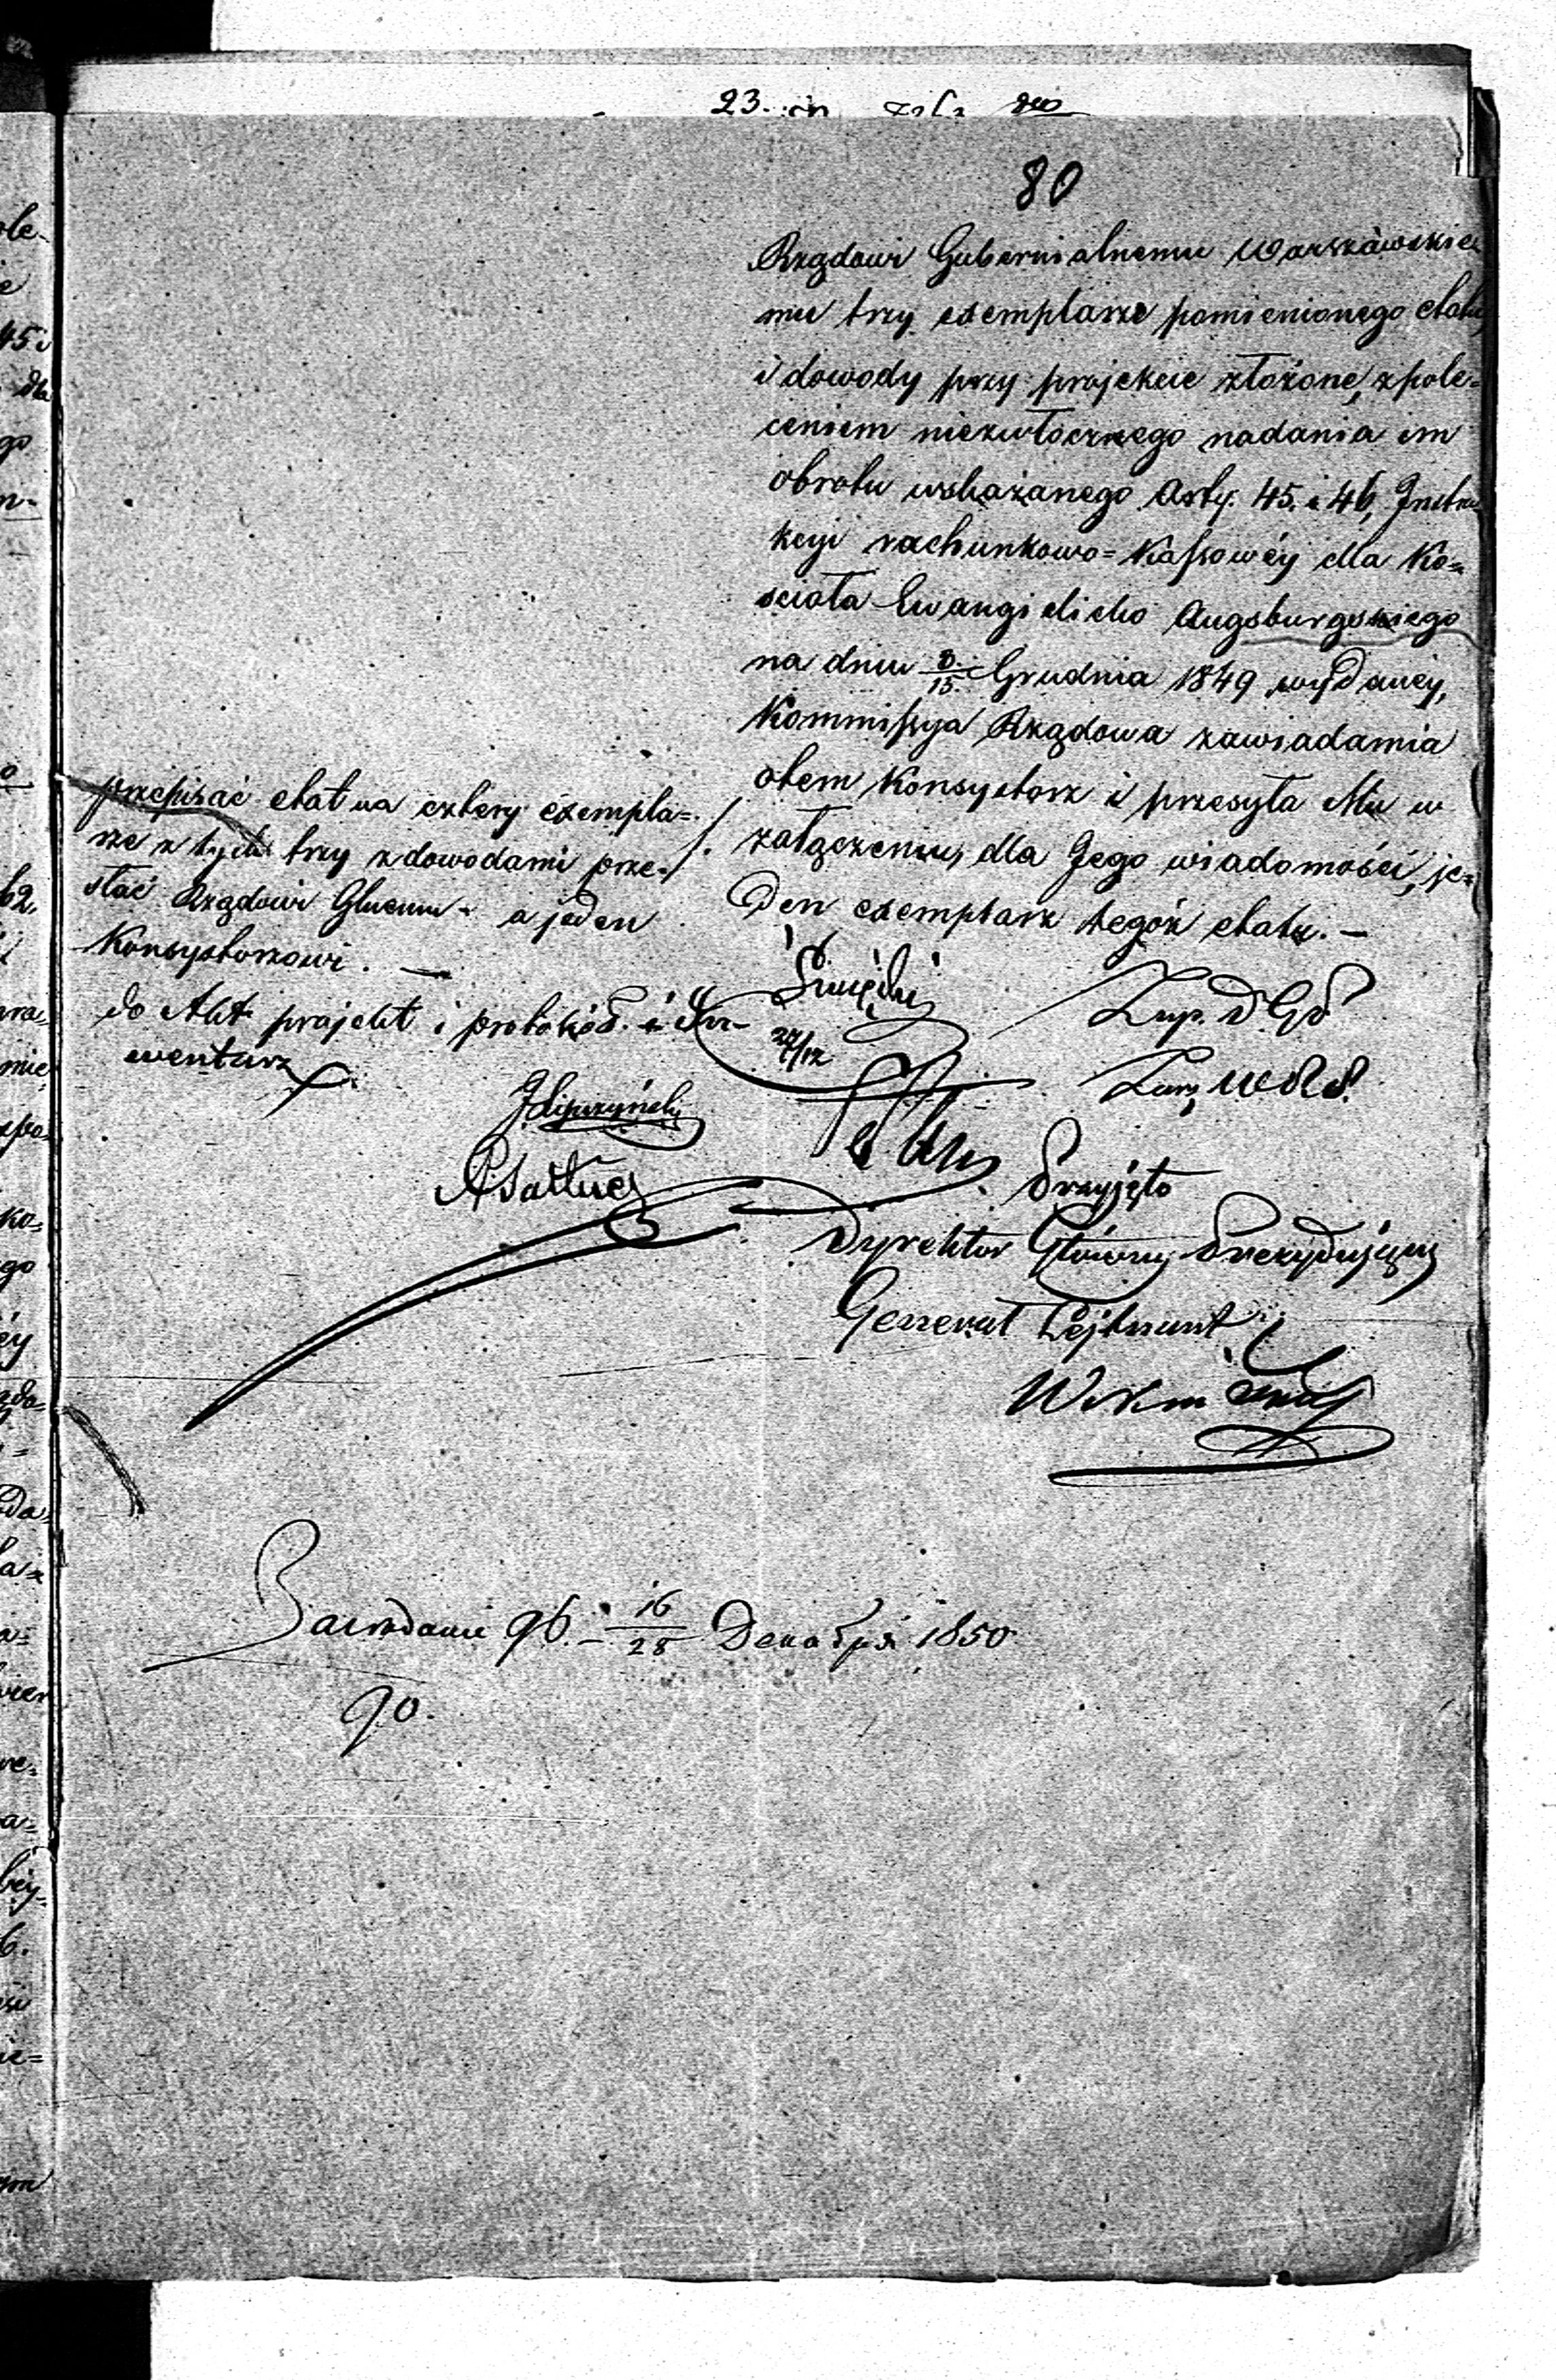 80
Rządowi Gubernialnemu Warszawskie
mu trzy exemplarze pomienionego etatu,
i dowody przy projekcie złożone, z pole=
ceniem niezwłocznego nadania im
obrotu wskazanego Arty. 45. i 46, Instru
kcyi rachunkowo=Kassowéy dla Ko=
scioła Ewangielicko Augsburgskiego
na dniu 3/15 Grudnia 1849 wydanéy,
Kommissya Rządowa zawiadamia
otem Konsystorz i przesyła Mu w
załączeniu, dla Jego wiadomości, je=
den exemplarz tegoż etatu. —
przepisać etat na cztery exempla=
rze z tych trzy z dowodami prze=
słać Rządowi Gluemu - a jeden
Konsystorzowi. —
do Akt projekt i protokół i in-
wentarz
27/12
Zup. D. G. P
Przyjęto
Dyrektor Główny Prezydujący
Generał Lejtnant
96. 16/28 Декабря 1850
90.